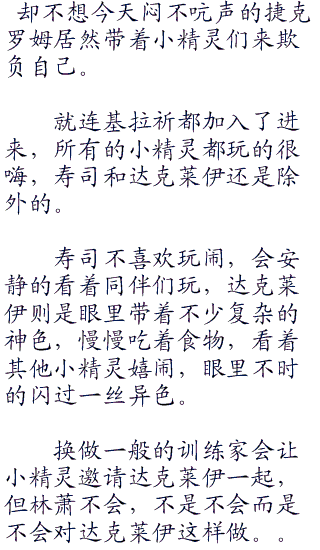 却不想今天闷不吭声的捷克
罗姆居然带着小精灵们来欺
负自己。
就连基拉祈都加入了进
来，所有的小精灵都玩的很
嗨，寿司和达克莱伊还是除
外的。
寿司不喜欢玩闹，会安
静的看着同伴们玩，达克莱
伊则是眼里带着不少复杂的
神色，慢慢吃着食物，看着
其他小精灵嬉闹，眼里不时
的闪过一丝异色。
换做一般的训练家会让
小精灵邀请达克莱伊一起，
但林萧不会，不是不会而是
不会对达克莱伊这样做。。